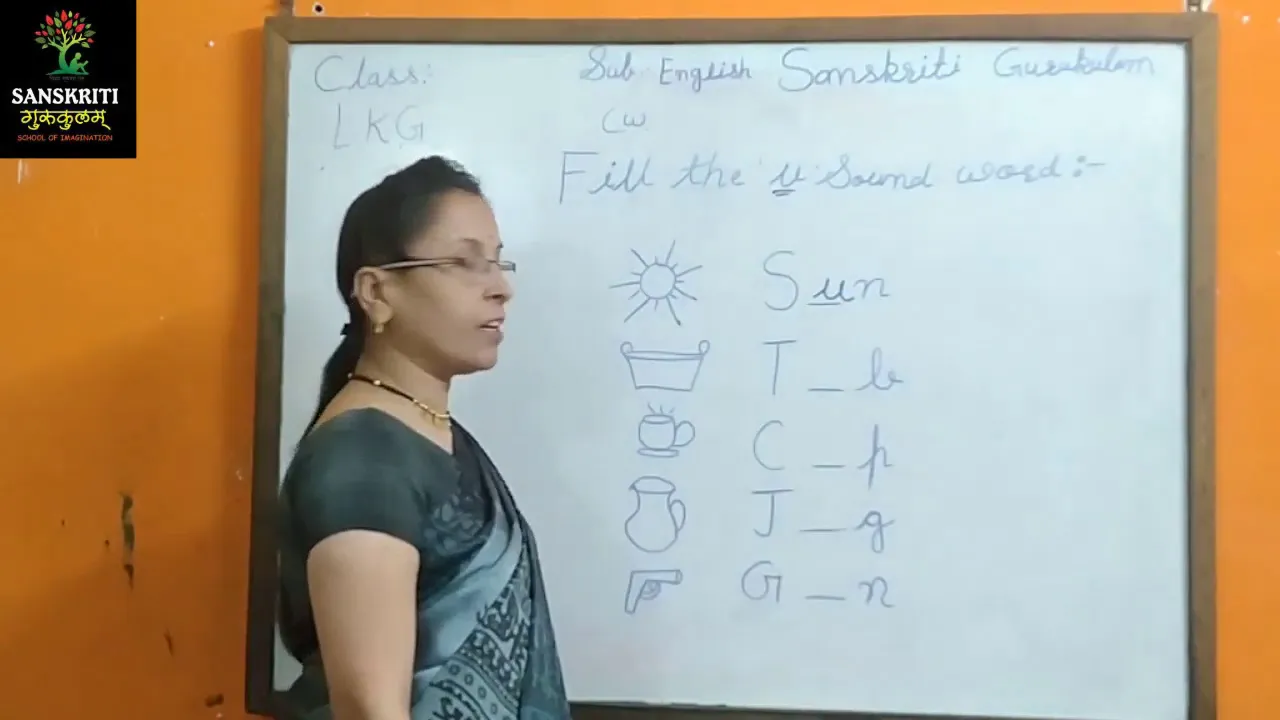 SANSKRITI
गुरुकुलम्
SCHOOL OF IMAGINATION
Class:
LKG
Sub English Sanskriti Gurukulam
CW
Fill the 'u' Sound word:-
Sun
T _ b
C _ p
J _ g
G _ n